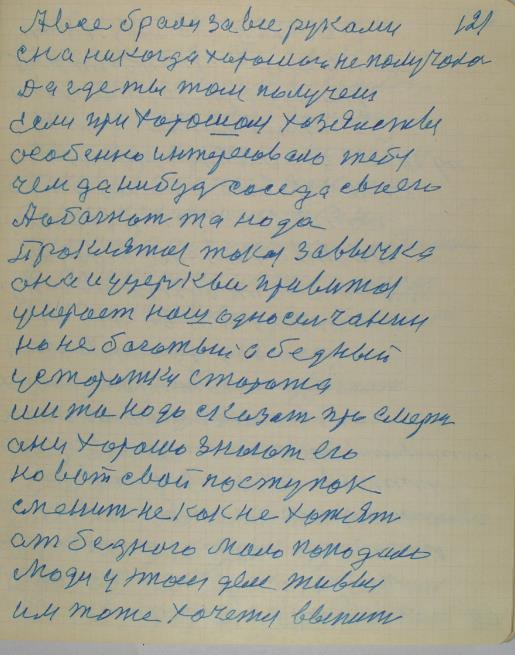 А все брали за все руками 121
сна никогда хорошого не получала
Да где ты там получеш
Если при хорошом хозяистви
особенно интересовало тебу
чем да нибуд соседа своего
Аабогнат та нада
Проклятоя такоя заввычка
она и у церкви привитоя
умерает наш односелчанин
но не богатый а бедный
у старожки старожа
им та надо сказат при смерти
они хорошо знают его
но вот свой поступок
сменит не как не хотят
от бедного мало попадало
Люди у том деле живы
им тоже хочетя ввыпит